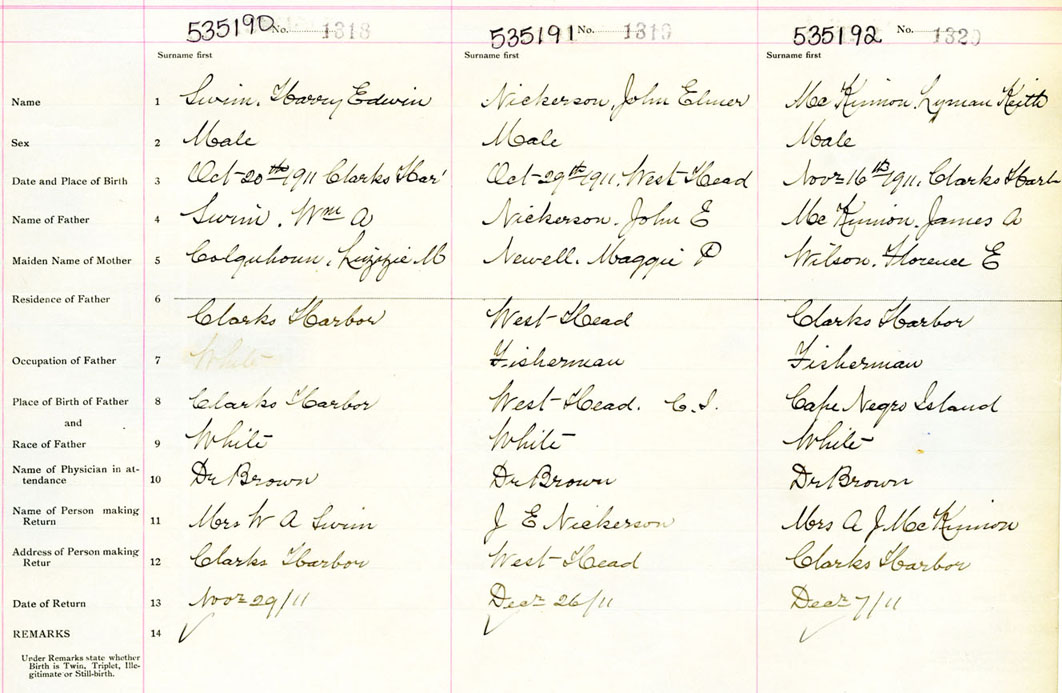 535190 No. 1318 535191 No. 1319 535192 No. 1320
Surname first Surname first Surname first
Name 1 Swim, Harry Edwin Nickerson, John Elmer Mc Kinnon, Lyman Keith
Sex 2 Male Male Male
Date and Place of Birth 3 Oct 20th 1911 Clarks Har' Oct 29th 1911, West Head Novr 16th 1911, Clarks Harb
Name of Father 4 Swim, Wm A Nickerson, John E Mc Kinnon, James A
Maiden Name of Mother 5 Colquhoun, Lizzie M Newell, Maggie P Wilson, Florence E
Residence of Father 6
Clarks Harbor West Head Clarks Harbor
Occupation of Father 7 White Fisherman Fisherman
Place of Birth of Father 8 Clarks Harbor West Head. C.I. Cape Negro Island
and
Race of Father 9 White White White
Name of Physician in at-
tendance 10 Dr Brown Dr Brown Dr Brown
Name of Person making
Return 11 Mrs W A Swim J E Nickerson Mrs A J McKinnon
Address of Person making
Retur 12 Clarks Harbor West Head Clarks Harbor
Date of Return 13 Novr 29/11 Decr 26/11 Decr 7/11
REMARKS 14
Under Remarks state whether
Birth is Twin, Triplet, Ille-
gitimate or Still-birth.